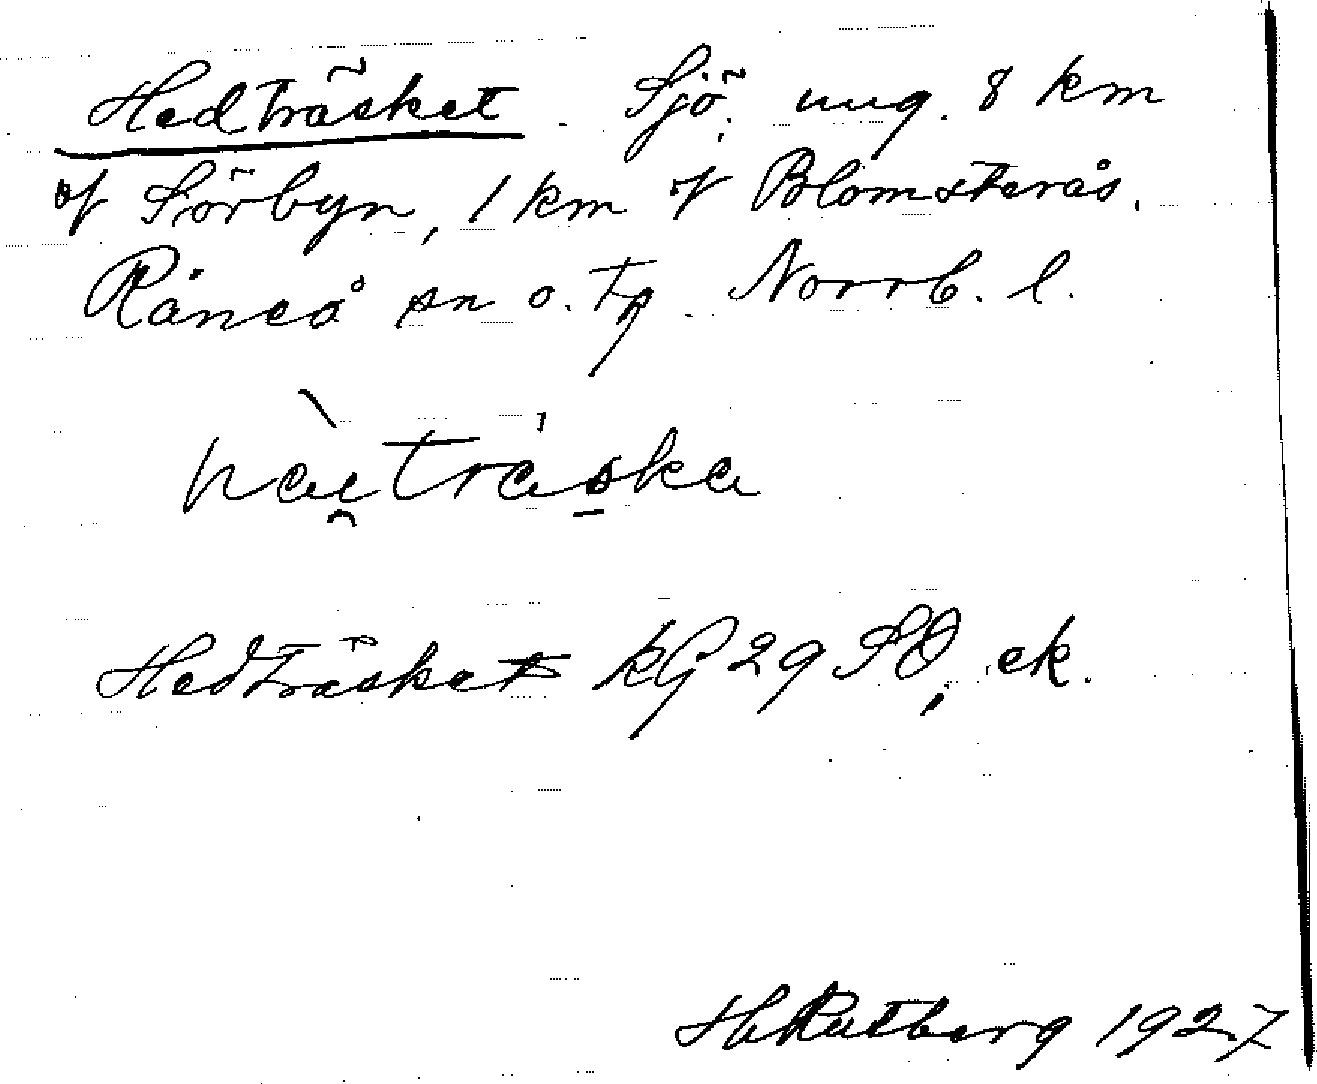 Hedträsket. Sjö, ung. 8 km
of Sörbyn, 1 km of Blomsterås.
Råneå sn o. tg. Norrb. l.
hàe̯tráska
Hedträsket kG 29 SO, ek.
H Rutberg 1927